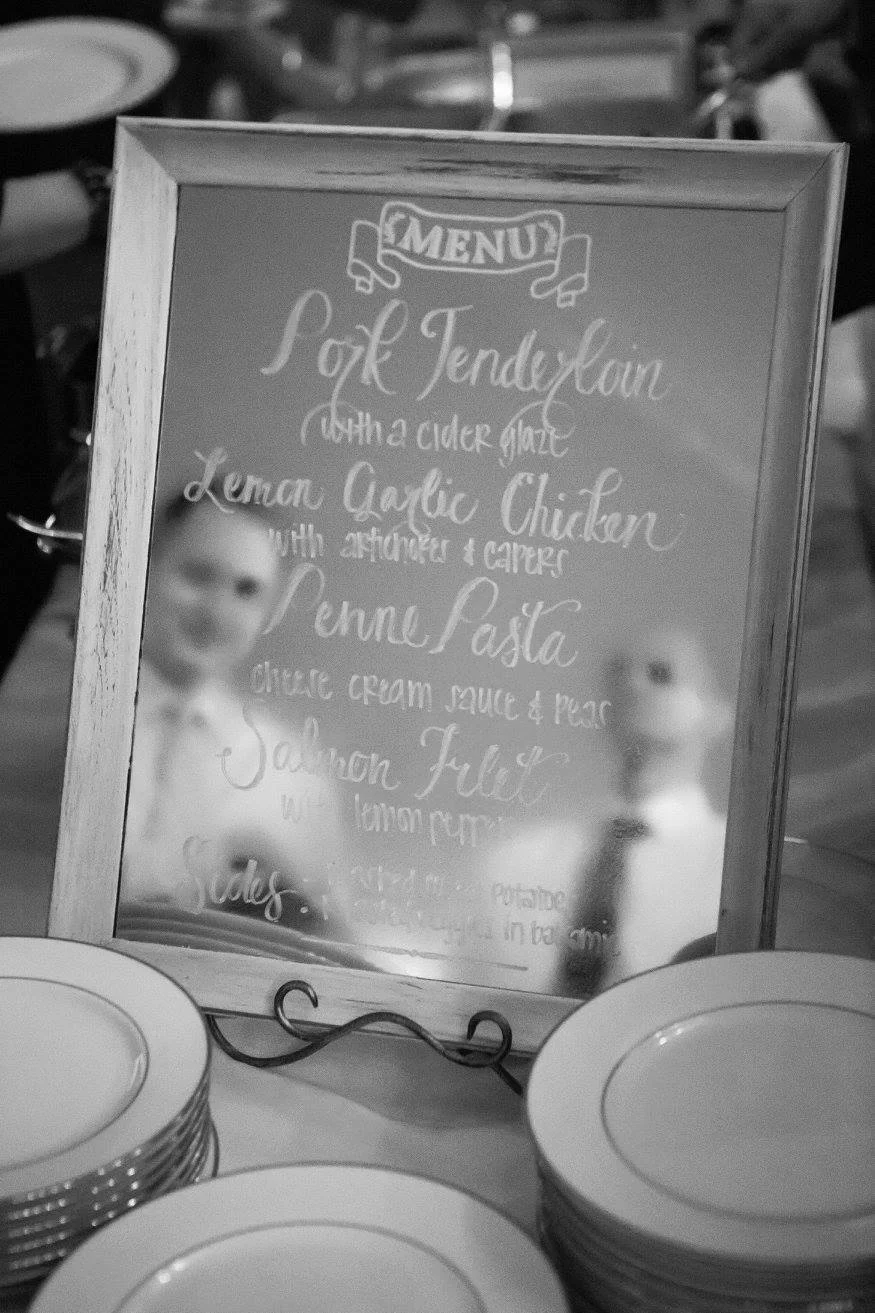 MENU
Pork Tenderloin
with a cider glaze
Lemon Garlic Chicken
with artichokes & capers
Penne Pasta
cheese cream sauce & peas
Salmon Filet
with lemon
Sides: potatoe
in